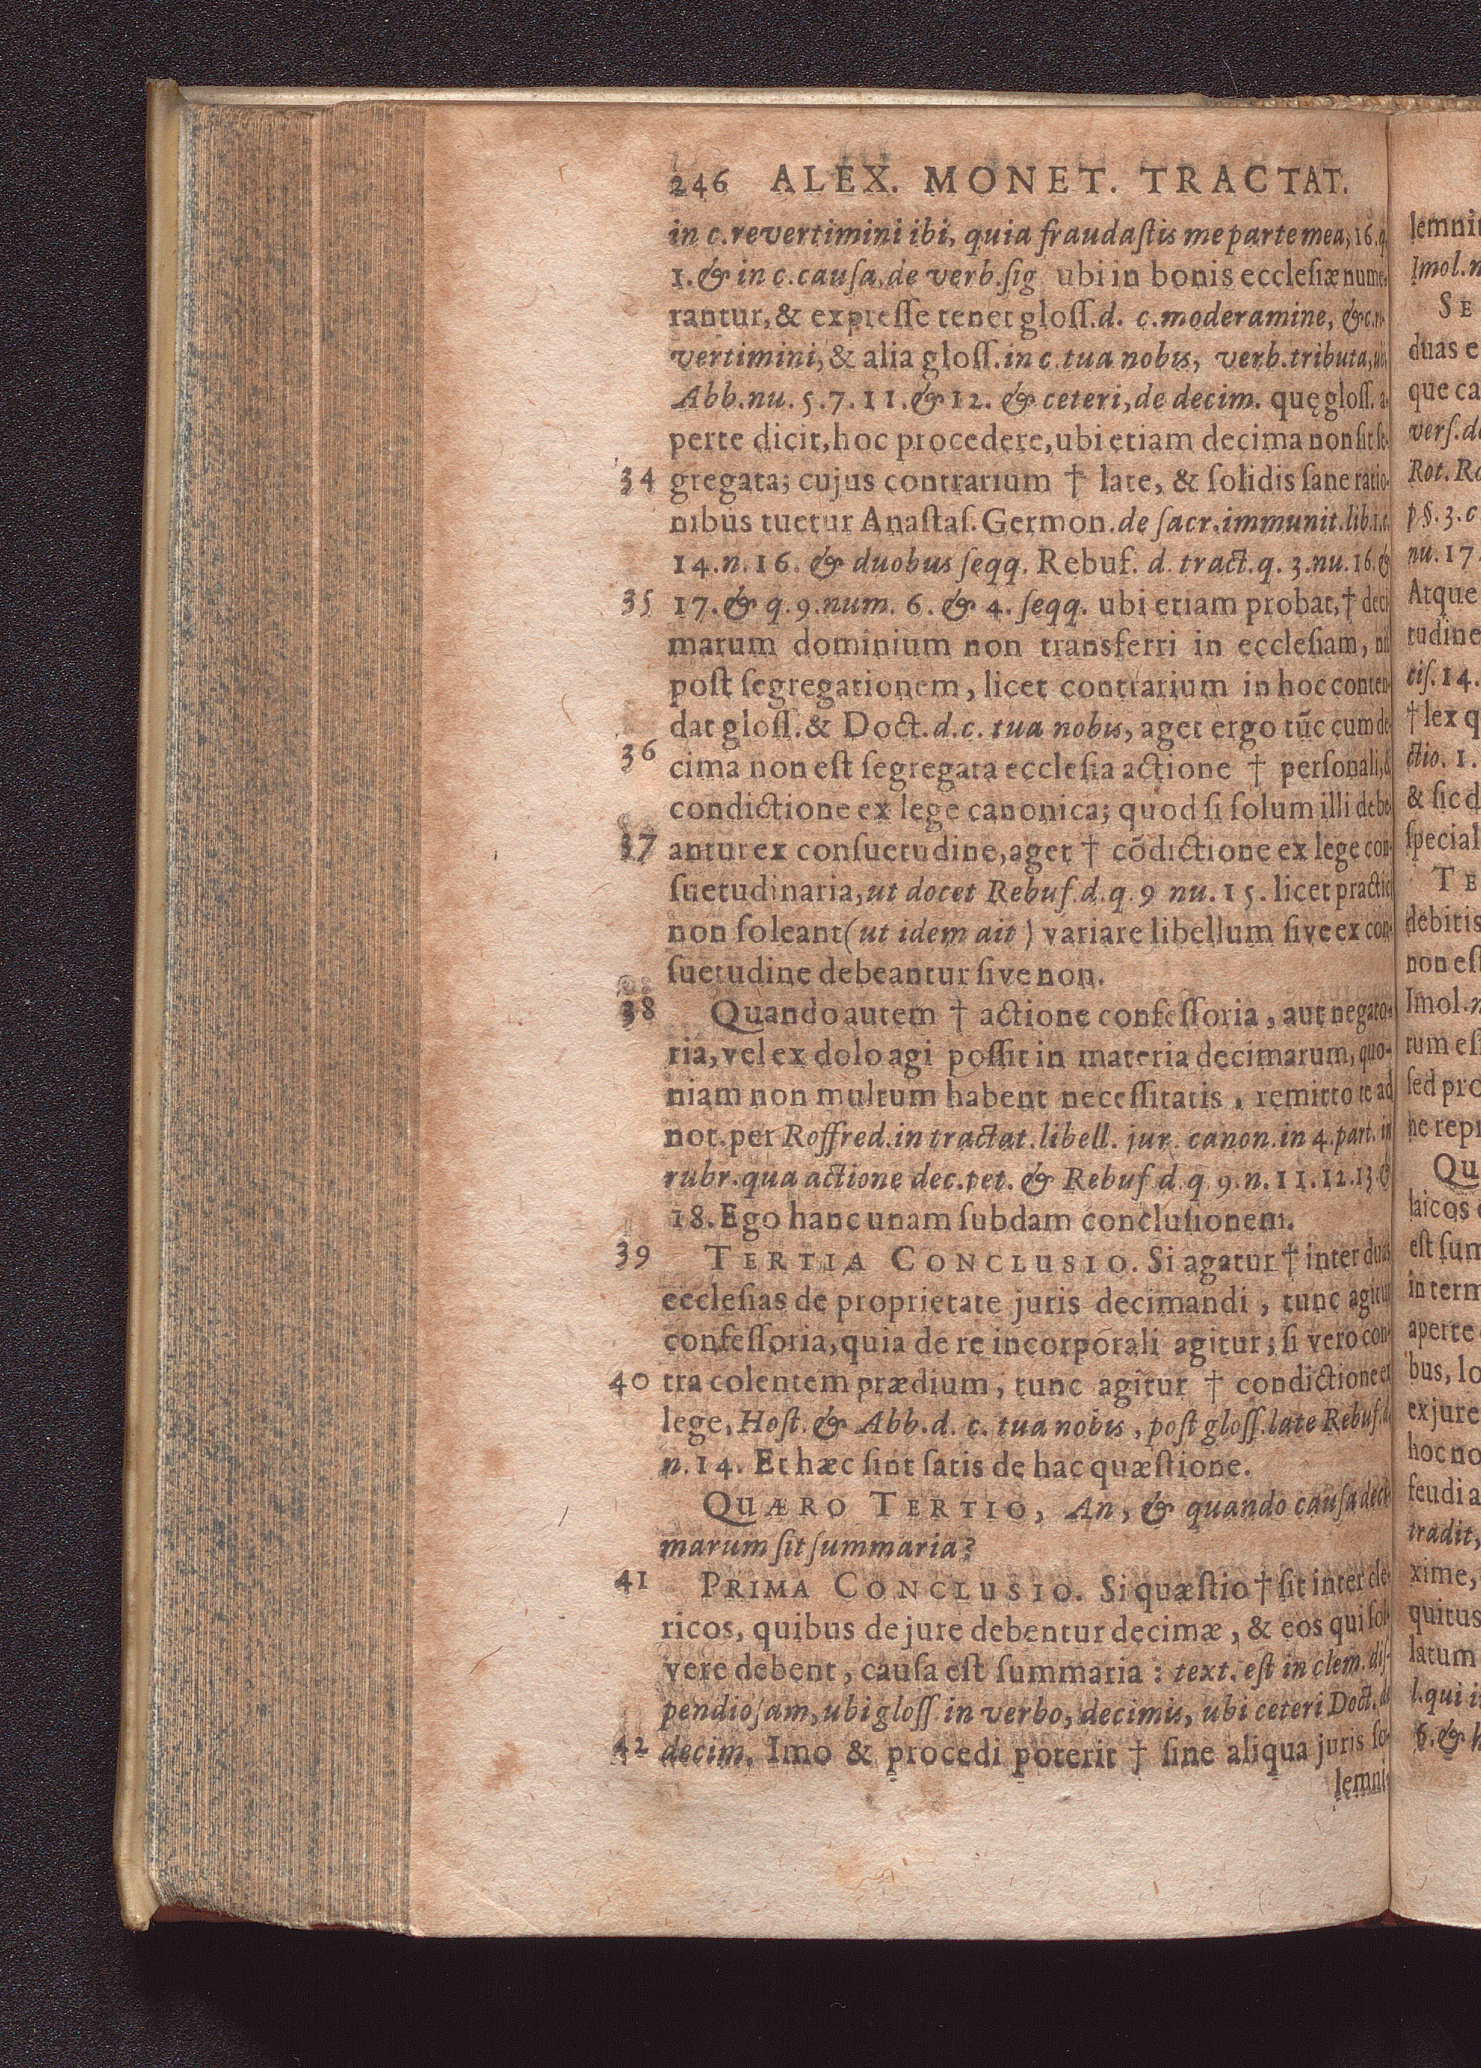 246 ALEX. MONET. TRACTAT.
in c. revertimini ibi, quia fraudaſtis me parte mea, 16. q.
1. & in c. cauſa, de verb. ſig ubi in bonis eccleſiæ nume-
rantur, & expreſſe tenet gloſſ. d. c. moderamine, & c. re-
vertimini, & alia gloſſ. in c. tua nobis, verb. tributa, ubi
Abb. nu. 5. 7. 11. & 12. & ceteri, de decim. quę gloſſ. a-
perte dicit, hoc procedere, ubi etiam decima non ſit ſe-
34 gregata; cujus contrarium † late, & ſolidis ſane ratio-
nibus tuetur Anaſtaſ. Germon. de ſacr. immunit. lib. 1. c.
14. n. 16. & duobus ſeqq. Rebuf. d. tract. q. 3. nu. 16. &
35 17. & q. 9. num. 6. & 4. ſeqq. ubi etiam probat, † deci
marum dominium non transferri in eccleſiam, ni
poſt ſegregationem, licet contrarium in hoc conten-
dat gloſſ. & Doct. d. c. tua nobis, aget ergo tūc cum de
36 cima non eſt ſegregata eccleſia actione † perſonali, &
condictione ex lege canonica; quod ſi ſolum illi debe
37 antur ex conſuetudine, aget † cōdictione ex lege con-
ſuetudinaria, ut docet Rebuf. d. q. 9 nu. 15. licet practic
non ſoleant (ut idem ait) variare libellum ſive ex con-
ſuetudine debeantur ſive non.
38 Quando autem † actione confeſſoria, aut negato-
ria, vel ex dolo agi poſſit in materia decimarum, quo-
niam non multum habent neceſſitatis, remitto te ad
not. per Roffred. in tractat. libell. jur. canon. in 4. part. in
rubr. qua actione dec. pet. & Rebuf d. q. 9. n. 11. 12. 13. &
18. Ego hanc unam ſubdam concluſionem.
39 TERTIA CONCLUSIO. Si agatur † inter duas
eccleſias de proprietate juris decimandi, tunc agitur
confeſſoria, quia de re incorporali agitur; ſi vero con-
40 tra colentem prædium, tunc agitur † condictione ex
lege, Hoſt. & Abb. d. c. tua nobis, poſt gloſſ. late Rebuf. d.
n. 14. Et hæc ſint ſatis de hac quæſtione.
QUÆRO TERTIO, An, & quando cauſa deci-
marum ſit ſummaria?
41 PRIMA CONCLUSIO. Si quæſtio † ſit inter cle-
ricos, quibus de jure debentur decimæ, & eos qui ſol-
vere debent, cauſa eſt ſummaria: text. eſt in clem. diſ-
pendioſam, ubi gloſſ in verbo, decimis, ubi ceteri Doct. de
42 decim. Imo & procedi poterit † ſine aliqua juris ſo-
lemni-
lemnit
Imol. n
SE
duas e
que ca
verſ. de
Rot. Ro
p §. 3. c
nu. 17.
Atque
tudine
ciſ. 14.
† lex q
ctio. 1.
& ſic d
ſpecial
TE
debitis
non eſt
Imol. n
rum eſ
ſed pro
ne repr
Qu
laicos
eſt ſum
in term
aperte
bus, lo
ex jure
hoc no
feudi a
tradit,
xime,
quitus
latum
l. qui i
6. & h